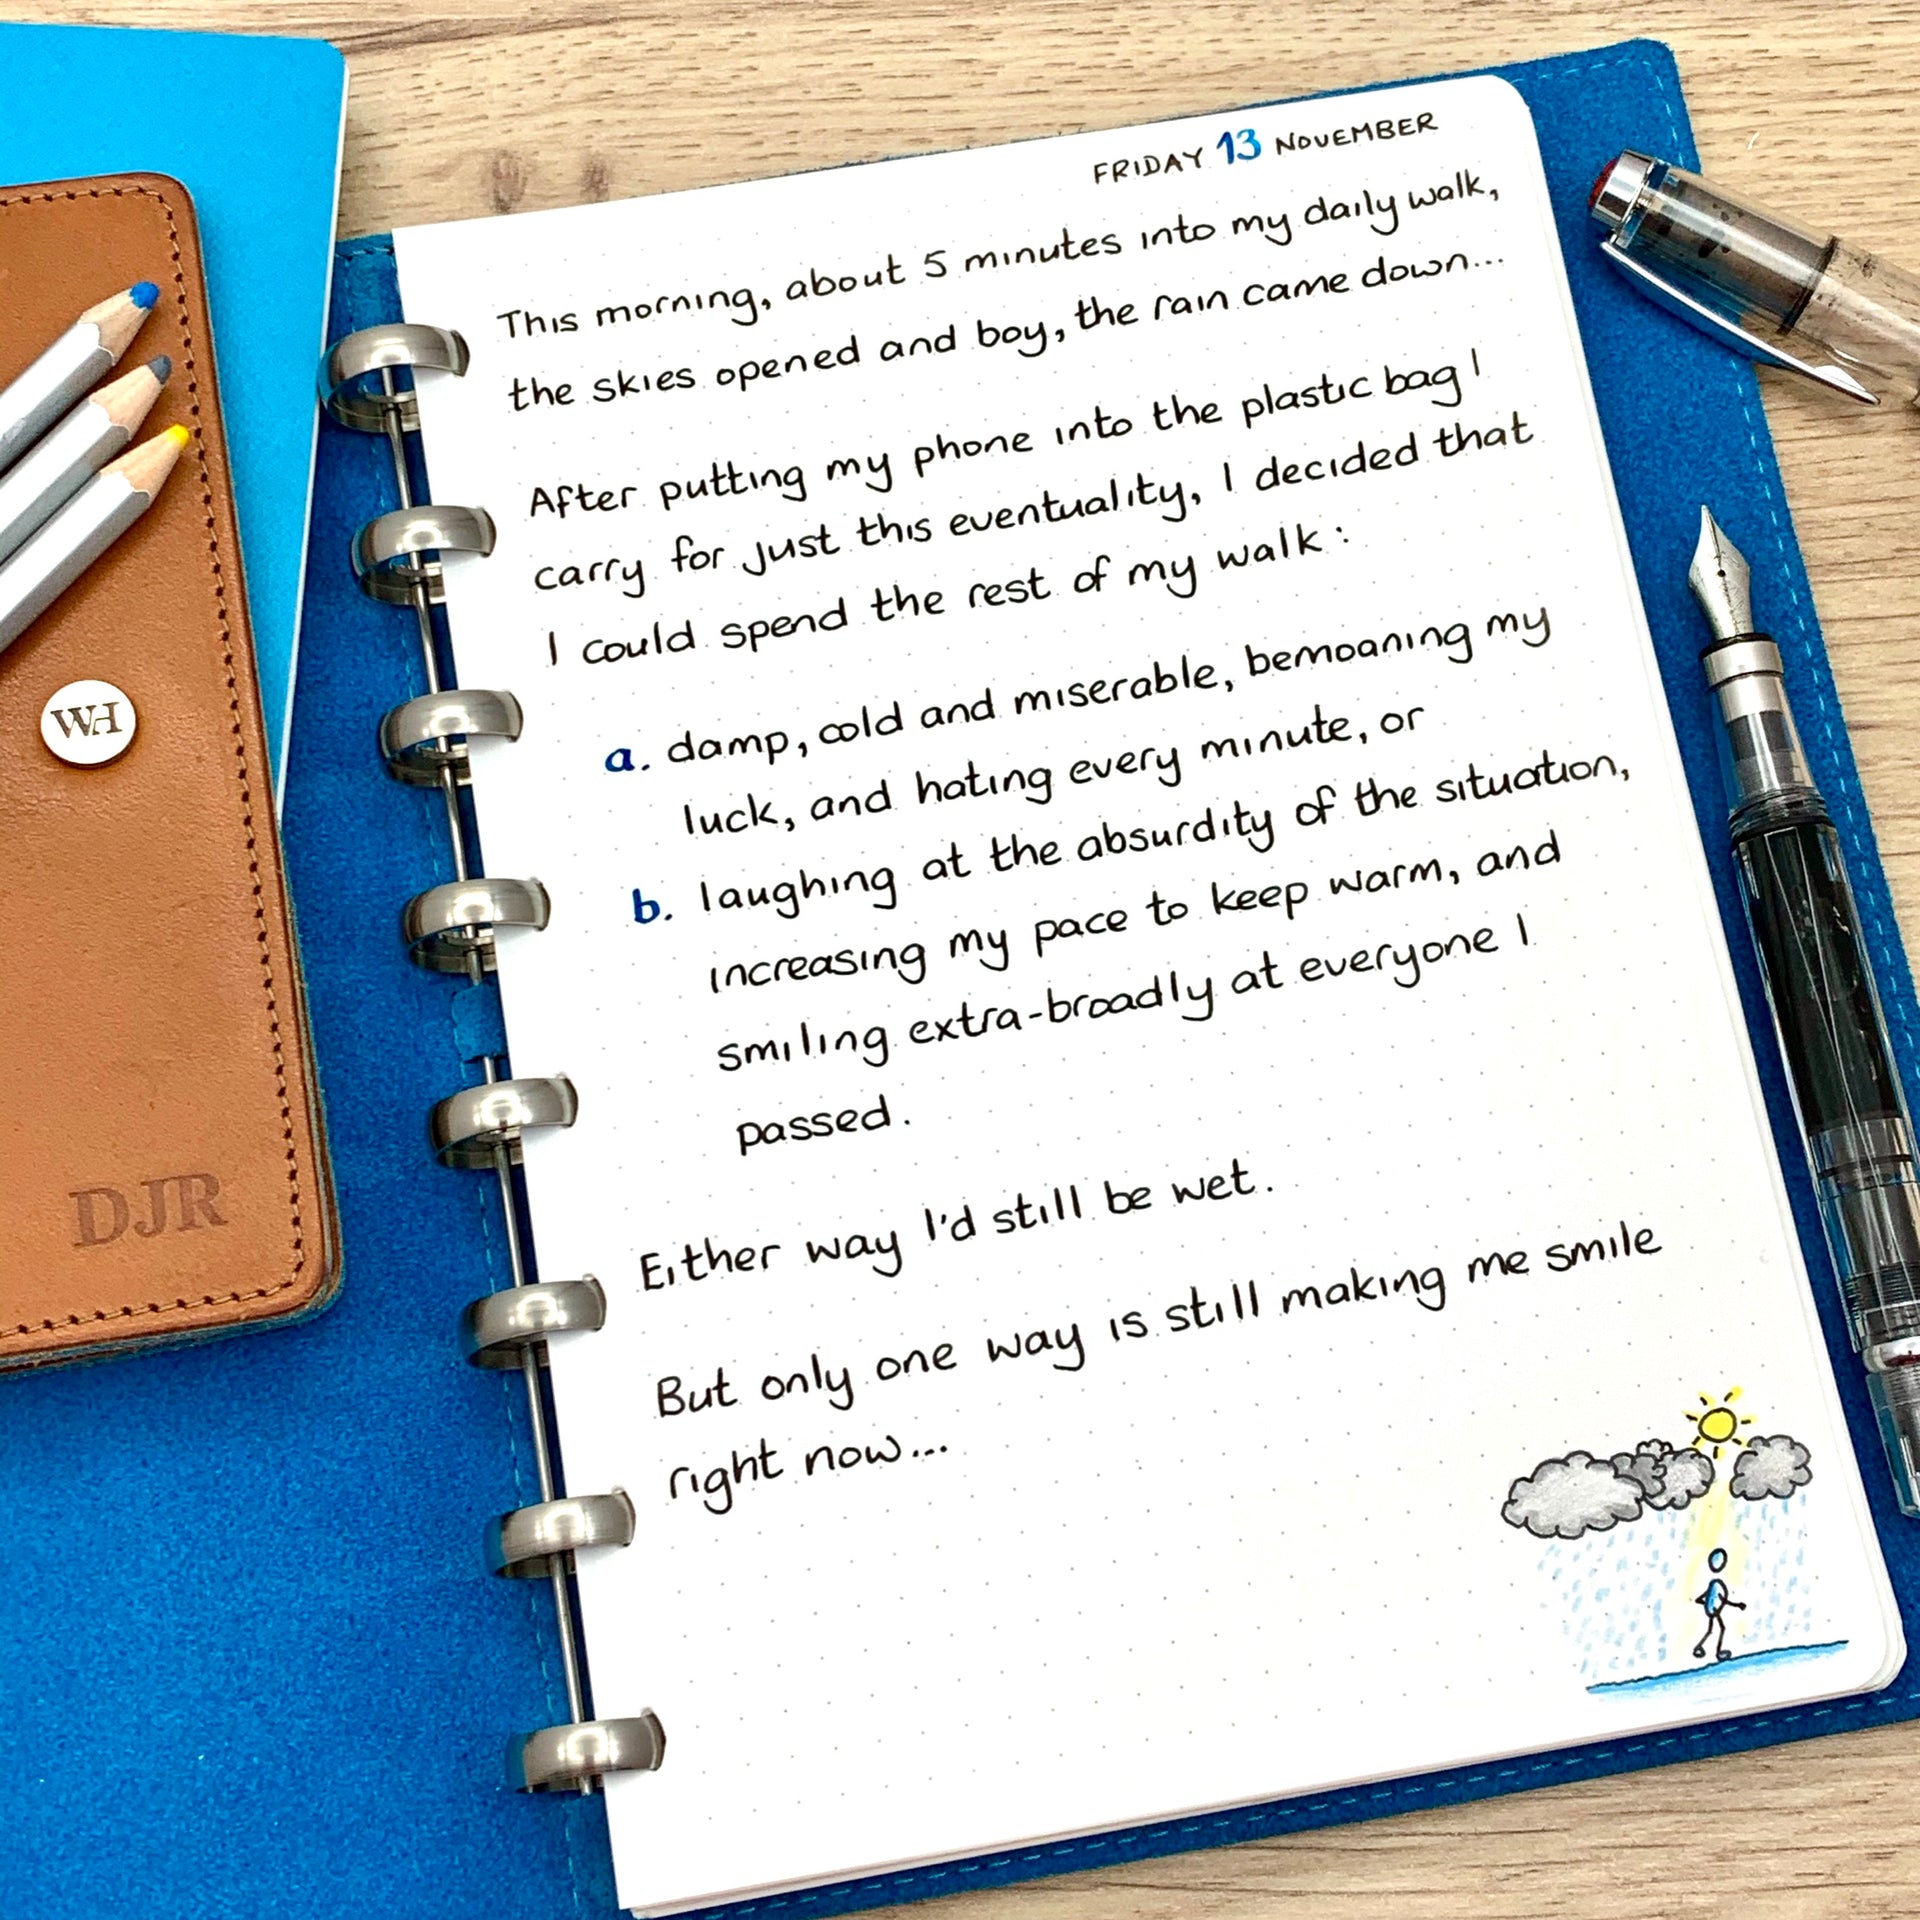 FRIDAY 13 NOVEMBER
This morning, about 5 minutes into my daily walk,
the skies opened and boy, the rain came down...
After putting my phone into the plastic bag I
carry for just this eventuality, I decided that
I could spend the rest of my walk:
a. damp, cold and miserable, bemoaning my
luck, and hating every minute, or
b. laughing at the absurdity of the situation,
increasing my pace to keep warm, and
smiling extra-broadly at everyone I
passed.
Either way I'd still be wet.
But only one way is still making me smile
right now...
WH
DJR